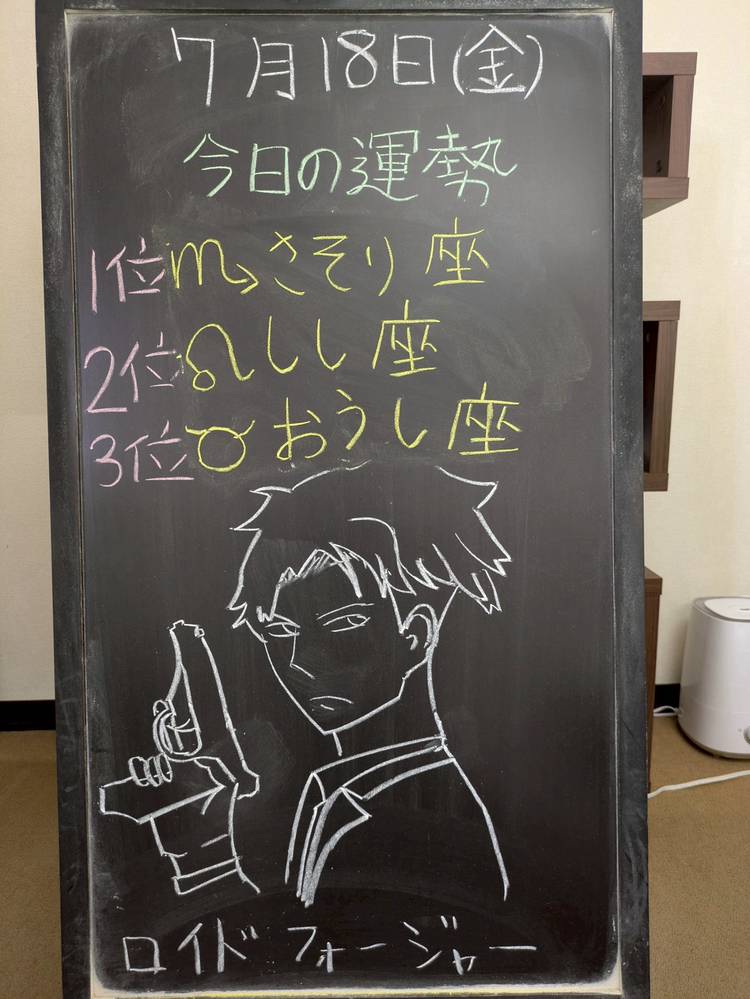 7月18日(金)
今日の運勢
1位♏さそり座
2位♌しし座
3位♉おうし座
ロイド フォージャー